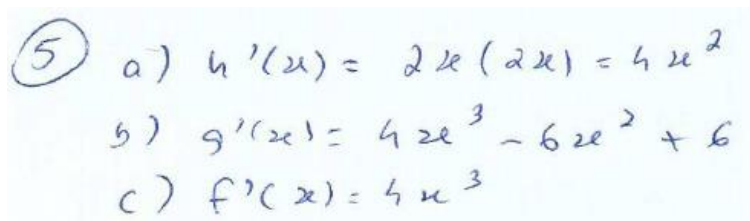 5 a) h'(x) = 2x(2x) = 4x²
b) g'(x) = 4x³ - 6x² + 6
c) f'(x) = 4x³